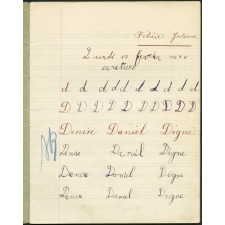 Lundi 15 février 1930
écriture
d d d d d d d d d d
D D D D D D D D D
Denise Daniel Digne
Denise Daniel Digne
Denise Daniel Digne
Denise Daniel Digne